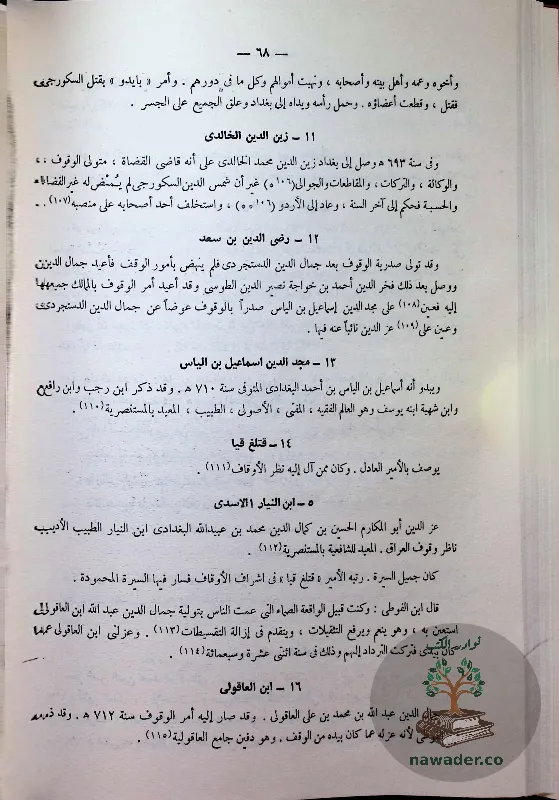 — ٦٨ —
وأخوه وعمه وأهل بيته وأصحابه ، ونهبت أموالهم وكل ما فى دورهم . وأمر « بايدو » بقتل السكورجى
فقتل ، وقطعت أعضاؤه . وحمل رأسه ويداه إلى بغداد وعلق الجميع على الجسر .
١١ - زين الدين الخالدى
وفى سنة ٦٩٣ ه وصل إلى بغداد زين الدين محمد الخالدى على أنه قاضى القضاة ، متولى الوقوف ،
والوكالة ، والتركات ، والمقاطعات والجوالى (١٠٦ *) غير أن شمس الدين السكورجى لم يمض له غير القضاء
والحسبة فحكم إلى آخر السنة ، وعاد إلى الأردو (١٠٦ * *) ، واستخلف أحد أصحابه على منصبه (١٠٧) .
١٢ - رضى الدين بن سعد
وقد تولى صدرية الوقوف بعد جمال الدين الدستجردى فلم ينهض بأمور الوقف فأعيد جمال الدين
ووصل بعد ذلك فخر الدين أحمد بن خواجة نصير الدين الطوسى وقد أعيد أمر الوقوف بالممالك جميعها
إليه فعين (١٠٨) على مجد الدين إسماعيل بن الياس صدراً بالوقوف عوضاً عن جمال الدين الدستجردى
وعين على (١٠٩) عز الدين نائباً عنه فيها .
١٣ - مجد الدين اسماعيل بن الياس
ويبدو أنه أسماعيل بن الياس بن أحمد البغدادى المتوفى سنة ٧١٠ ه . وقد ذكر ابن رجب وابن رافع
وابن شهبة ابنه يوسف وهو العالم الفقيه ، المفتى ، الأصولى ، الطبيب ، المعيد بالمستنصرية (١١٠) .
١٤ - قتلغ قيا
يوصف بالأمير العادل . وكان ممن آل إليه نظر الأوقاف (١١١) .
٥ - ابن النيار الاسدى
عز الدين أبو المكارم الحسين بن كمال الدين محمد بن عبيدالله البغدادى ابن النيار الطبيب الأديب
ناظر وقوف العراق . المعيد للشافعية بالمستنصرية (١١٢) .
كان جميل السيرة . رتبه الأمير « قتلغ قيا » فى اشراف الأوقاف فسار فيها السيرة المحمودة .
قال ابن الفوطى : وكنت قبيل الواقعة الصماء التى عمت الناس بتولية جمال الدين عبد الله ابن العاقولى
استعين به ، وهو ينعم ويرفع التثقيلات ، ويتقدم فى إزالة التقسيطات (١١٣) . وعزلنى ابن العاقولى عما
كان بيدى فتركت الترداد إليهم وذلك فى سنة اثنى عشرة وسبعمائة (١١٤)
١٦ - ابن العاقولى
الدين عبد الله بن محمد بن على العاقولى . وقد صار إليه أمر الوقوف سنة ٧١٢ ه . وقد ذمه
لأنه عزله عما كان بيده من الوقف . وهو دفين جامع العاقولية (١١٥) .
نوادر الكتب
nawader.co